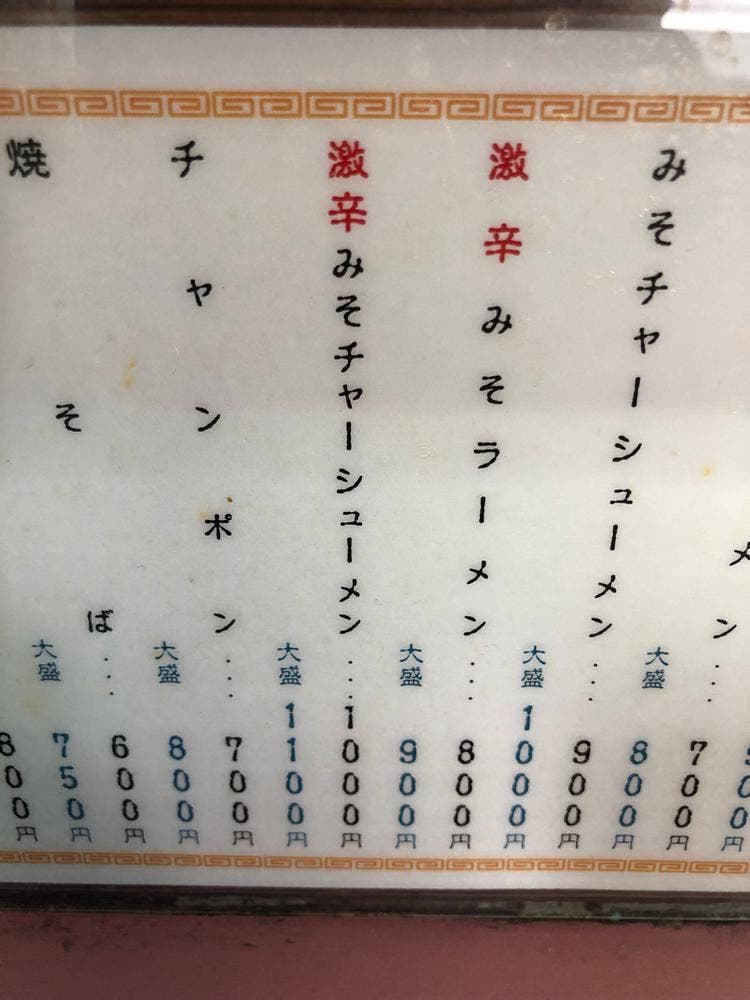 メン…700円
大盛 800円
みそチャーシューメン…900円
大盛 1000円
激辛みそラーメン…800円
大盛 900円
激辛みそチャーシューメン…1000円
大盛 1100円
チャンポン…700円
大盛 800円
焼そば…600円
大盛 750円
800円